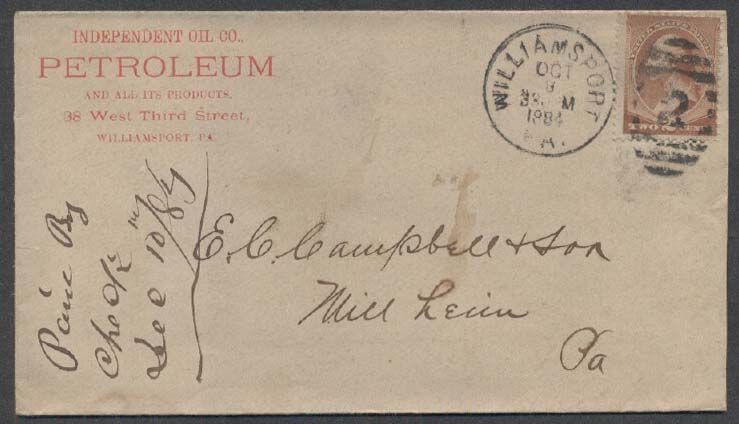 INDEPENDENT OIL CO.,
PETROLEUM
AND ALL ITS PRODUCTS.
38 West Third Street,
WILLIAMSPORT, PA.
WILLIAMSPORT
OCT
9
M
1884
PA.
TWO CENTS
2
E. C. Campbell & Son
Mill Heim
Pa
Paid By
Check
Dec 10/84